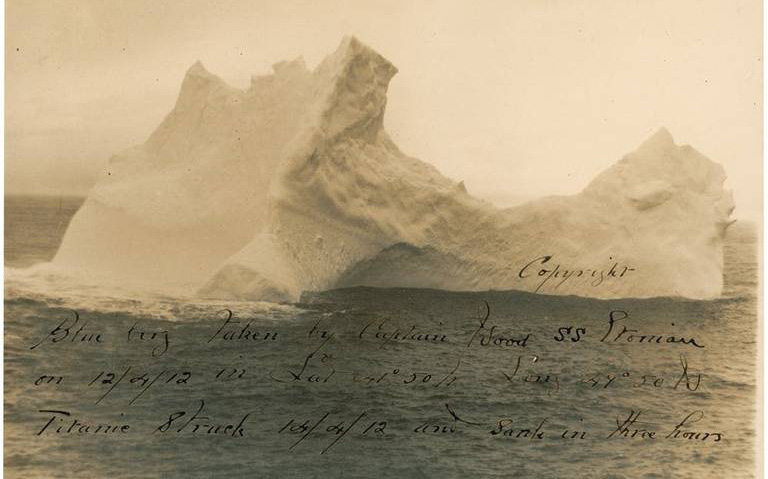 Copyright
Blue berg Taken by Captain Wood SS Etonian
on 12/4/12 in Lat 41°50 N Long 49°50 W
Titanic Struck 14/4/12 and Sank in three hours